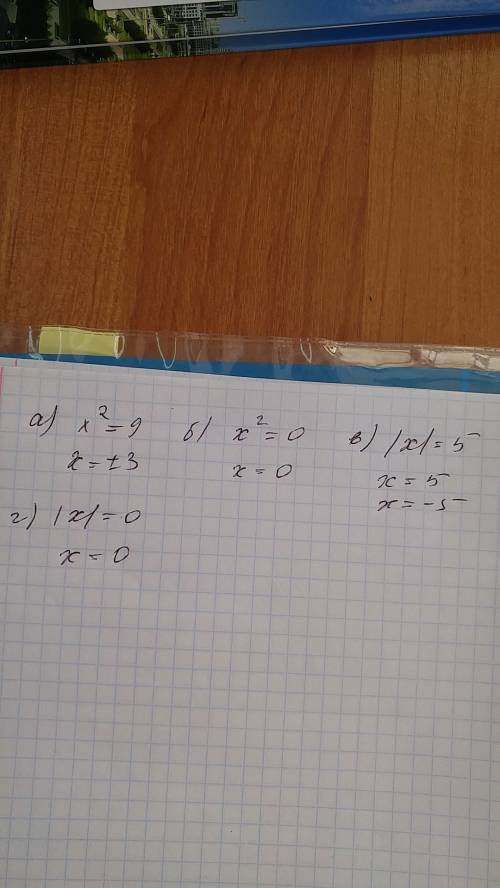 а) x² = 9
x = ±3
б) x² = 0
x = 0
в) |x| = 5
x = 5
x = -5
г) |x| = 0
x = 0